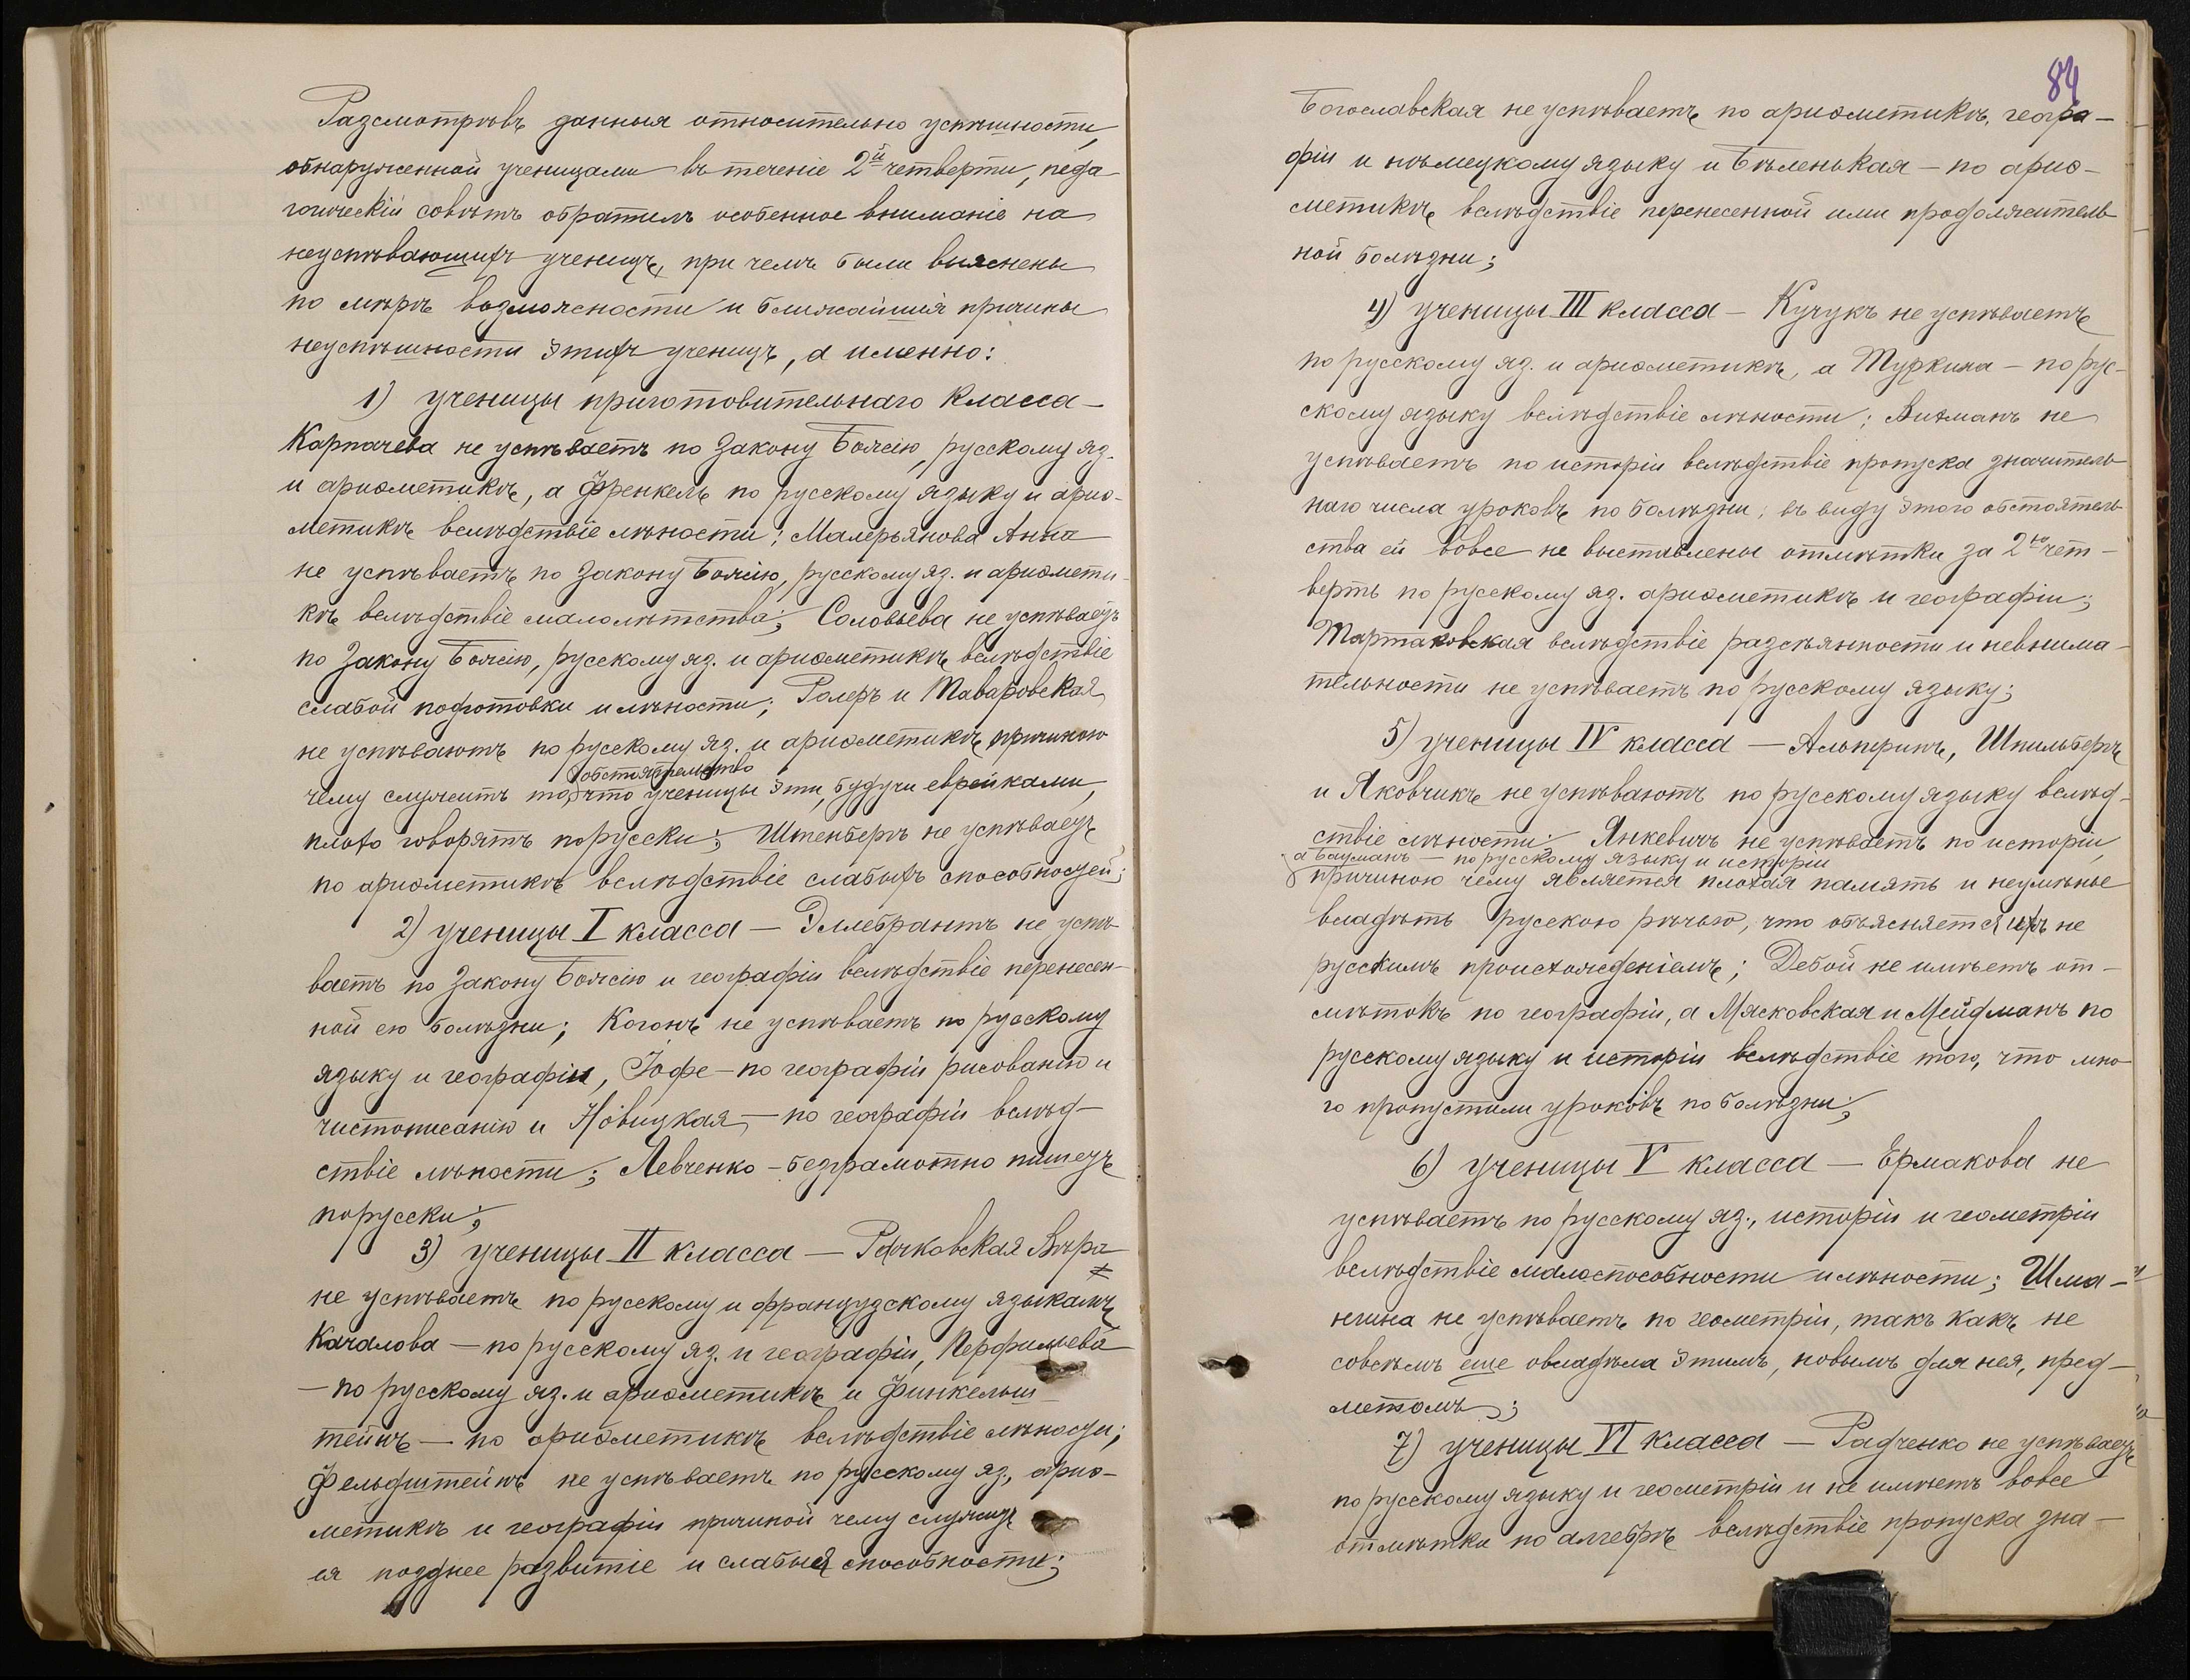 Разсмотрѣвъ данныя относительно успѣшности,
обнаруженной ученицами въ теченіе 2й четверти, педа-
гогическій совѣтъ обратилъ особенное вниманіе на
неуспѣвающихъ ученицъ, при чемъ были выяснены
по мѣрѣ возможности и ближайшія причины
неуспѣшности этихъ ученицъ, а именно:
1) ученицы приготовительнаго класса —
Карпачева не успѣваетъ по Закону Божію, русскому яз.
и ариѳметикѣ, а Френкель по русскому языку и ариѳ-
метикѣ вслѣдствіе лѣности; Малерьянова Анна
не успѣваетъ по Закону Божію, русскому яз. и ариѳмети-
кѣ вслѣдствіе малолѣтства; Соловьева не успѣваетъ
по Закону Божію, русскому яз. и ариѳметикѣ вслѣдствіе
слабой подготовки и лѣности; Ролеръ и Таваровская
не успѣваютъ по русскому яз. и ариѳметикѣ, причиною
обстоятельство
чему служитъ то, что ученицы эти, будучи еврейками,
плохо говорятъ порусски; Штенбергъ не успѣваетъ
по ариѳметикѣ вслѣдствіе слабыхъ способностей;
2) ученицы I класса — Эллебрантъ не успѣ-
ваетъ по Закону Божію и географіи вслѣдствіе перенесен-
ной ею болѣзни; Когонъ не успѣваетъ по русскому
языку и географіи, Іофе — по географіи рисованію и
чистописанію и Новицкая — по географіи вслѣд-
ствіе лѣности; Левченко — безграмотно пишетъ
порусски;
3) ученицы II класса — Рачковская Вѣра
не успѣваетъ по русскому и французскому языкамъ,
Качалова — по русскому яз. и географіи, Перфильева
— по русскому яз. и ариѳметикѣ и Финкельш-
тейнъ — по ариѳметикѣ вслѣдствіе лѣности;
Фельдштейнъ не успѣваетъ по русскому яз., ариѳ-
метикѣ и географіи причиной чему служитъ
ея позднее развитіе и слабыя способности;
84
Богославская не успѣваетъ по ариѳметикѣ, геогра-
фіи и нѣмецкому языку и Бѣленькая — по ариѳ-
метикѣ, вслѣдствіе перенесенной ими продолжитель-
ной болѣзни;
4) ученицы III класса — Кучукъ не успѣваетъ
по русскому яз. и ариѳметикѣ, а Туркина — по рус-
скому языку вслѣдствіе лѣности; Вихманъ не
успѣваетъ по исторіи вслѣдствіе пропуска значитель-
наго числа уроковъ по болѣзни; въ виду этого обстоятель-
ства ей вовсе не выставлены отмѣтки за 2ю чет-
верть по русскому яз. ариѳметикѣ и географіи;
Тартаковская вслѣдствіе разсѣянности и невнима-
тельности не успѣваетъ по русскому языку;
5) ученицы IV класса — Альперинъ, Шпильбергъ
и Яковчикъ не успѣваютъ по русскому языку вслѣд-
ствіе лѣности; Янкевичъ не успѣваетъ по исторіи,
а Бауманъ — по русскому языку и исторіи
причиною чему является плохая память и неумѣнье
владѣть русскою рѣчью, что объясняется ихъ не
русскимъ происхожденіемъ; Дебой не имѣетъ от-
мѣтокъ по географіи, а Мясковская и Мейдманъ по
русскому языку и исторіи вслѣдствіе того, что мно-
го пропустили уроковъ по болѣзни;
6) ученицы V класса — Ермакова не
успѣваетъ по русскому яз., исторіи и геометріи
вслѣдствіе малоспособности и лѣности; Шма-
нгина не успѣваетъ по геометріи, такъ какъ не
совсѣмъ еще овладѣла этимъ, новымъ для нея, пред-
метомъ;
7) ученицы VI класса — Радченко не успѣваетъ
по русскому языку и геометріи и не имѣетъ вовсе
отмѣтки по алгебрѣ вслѣдствіе пропуска зна-